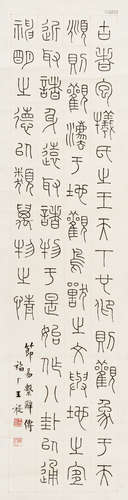 古者包犧氏之王天下也仰則觀象于天
頫則觀灋于地觀鳥獸之文與地之宜
近取諸身遠取諸物于是始作八卦以通
神明之德以類萬物之情
節易繫辭傳
福厂王禔